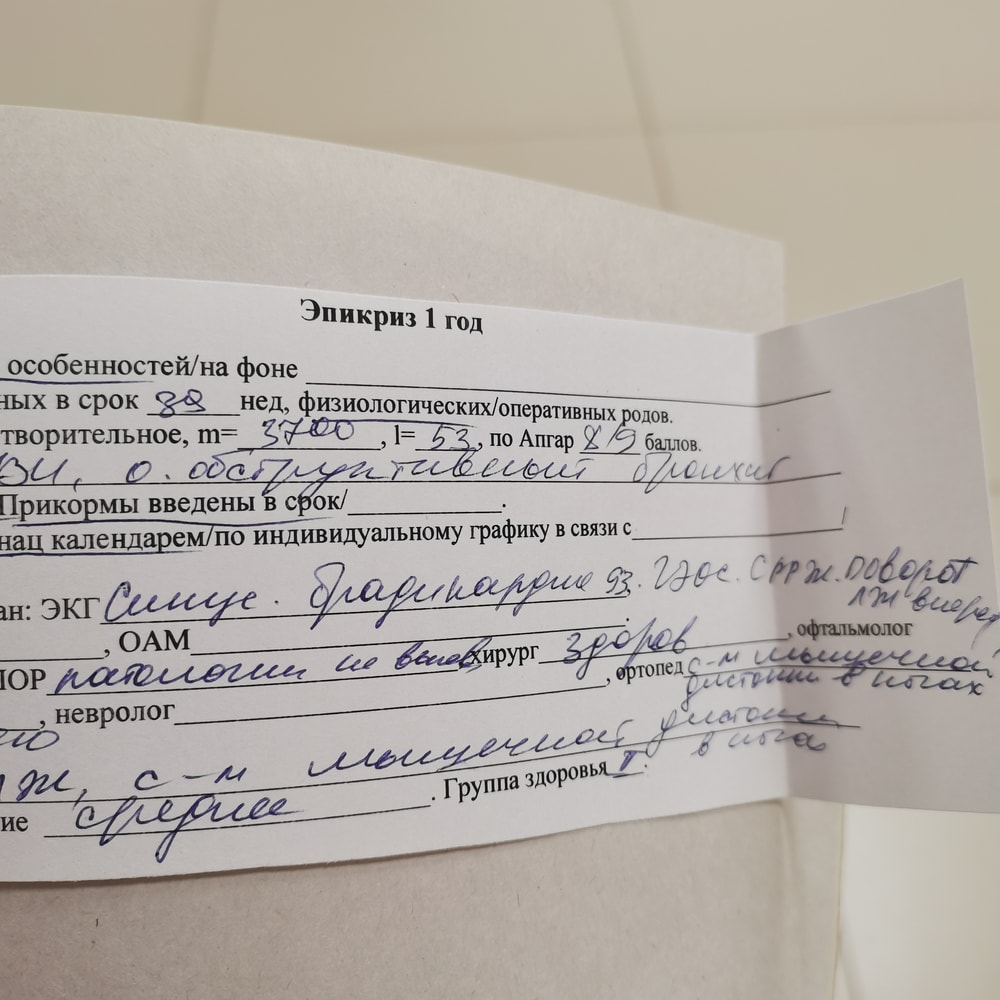 Эпикриз 1 год
особенностей/на фоне
ных в срок 39 нед, физиологических/оперативных родов.
творительное, m= 3700, l= 53, по Апгар 8/9 баллов.
ВИ, о. обструктивный бронхит
Прикормы введены в срок/
нац календарем/по индивидуальному графику в связи с
ан: ЭКГ Синус. брадикардия 93. ГЭОС. СРРЖ. поворот
ЛЖ вперед
, ОАМ , офтальмолог
ЛОР патологии не выяв хирург здоров
, невролог , ортопед с-м мышечной
дистонии в ногах
го
РЖ, с-м мышечной дистонии
в ногах
ие средние . Группа здоровья II.